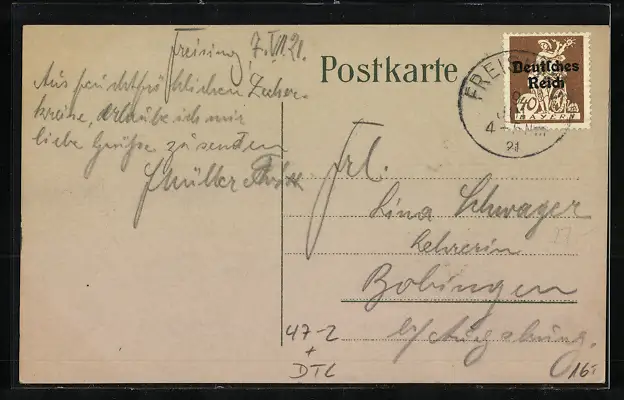 Freising, 7.VII.21.
Aus feuchtfröhlichem Zecher-
kreise, erlaube ich mir
liebe Grüße zu senden
Müller
Postkarte
Deutsches
Reich
40
BAYERN
FREIS
4-5 Nm
21
Frl.
Lina Schwager
Lehrerin
Bobingen
b/Augsburg.
47-2
+
DTL
16